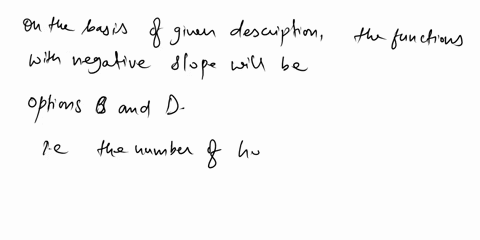 on the basis of given description, the functions
with negative slope will be
options B and D.
i.e the number of ho